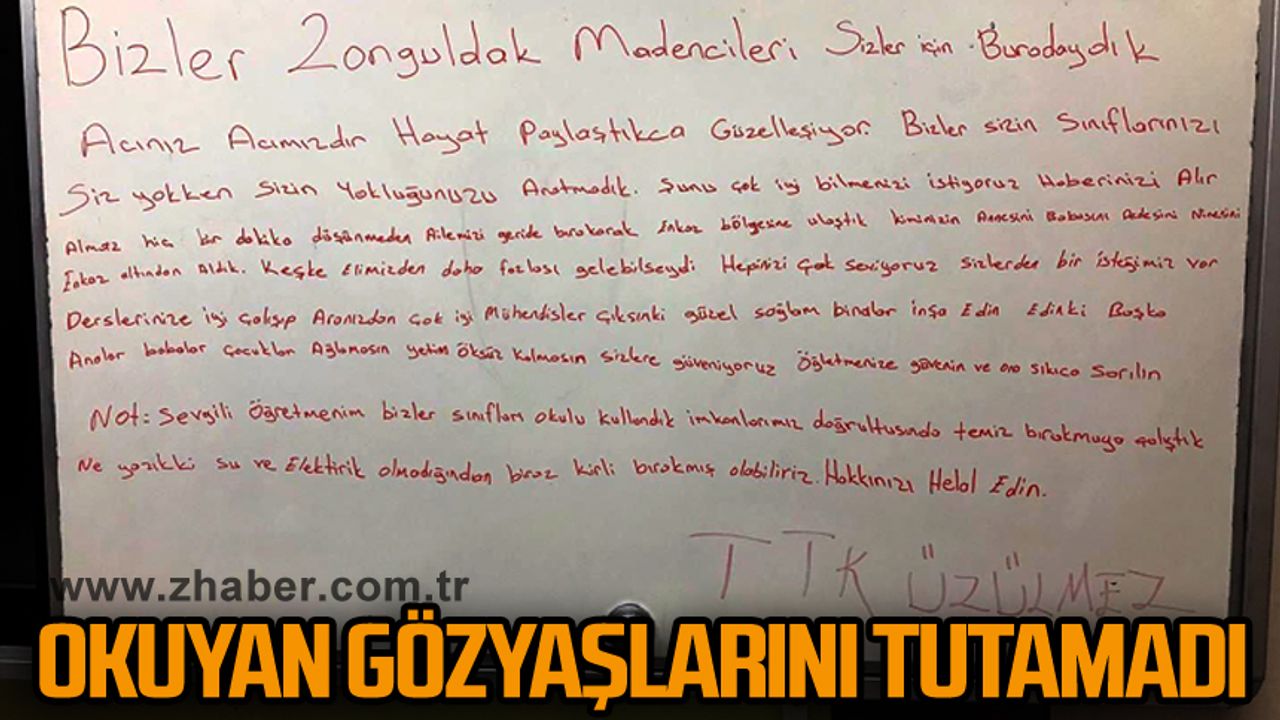 Bizler Zonguldak Madencileri Sizler için Buradaydık
Acınız Acımızdır Hayat Paylaştıkca Güzelleşiyor. Bizler sizin Sınıflarınızı
Siz yokken Sizin Yokluğunuzu Aratmadık. Şunu çok iyi bilmenizi istiyoruz Haberinizi Alır
Almaz hic bir dakika düşünmeden Ailemizi geride bırakarak Enkaz bölgesine ulaştık kiminizin Annesini Babasını Dedesini Ninesini
Enkaz altından Aldık. Keşke Elimizden daha fazlası gelebilseydi Hepinizi Çok seviyoruz sizlerden bir isteğimiz var
Derslerinize iyi çalışıp Aranızdan çok iyi Mühendisler Çıksınki güzel sağlam binalar inşa Edin Edinki Başka
Analar babalar çocuklar Ağlamasın yetim Öksüz kalmasın sizlere güveniyoruz Öğretmenize güvenin ve ona sıkıca Sarılın
Not: Sevgili Öğretmenim bizler sınıfları okulu kullandık imkanlarımız doğrultusunda temiz bırakmaya çalıştık
Ne yazıkki su ve Elektirik olmadığından biraz kirli bırakmış olabiliriz. Hakkınızı Helal Edin.
TTK ÜZÜLMEZ
www.zhaber.com.tr
OKUYAN GÖZYAŞLARINI TUTAMADI